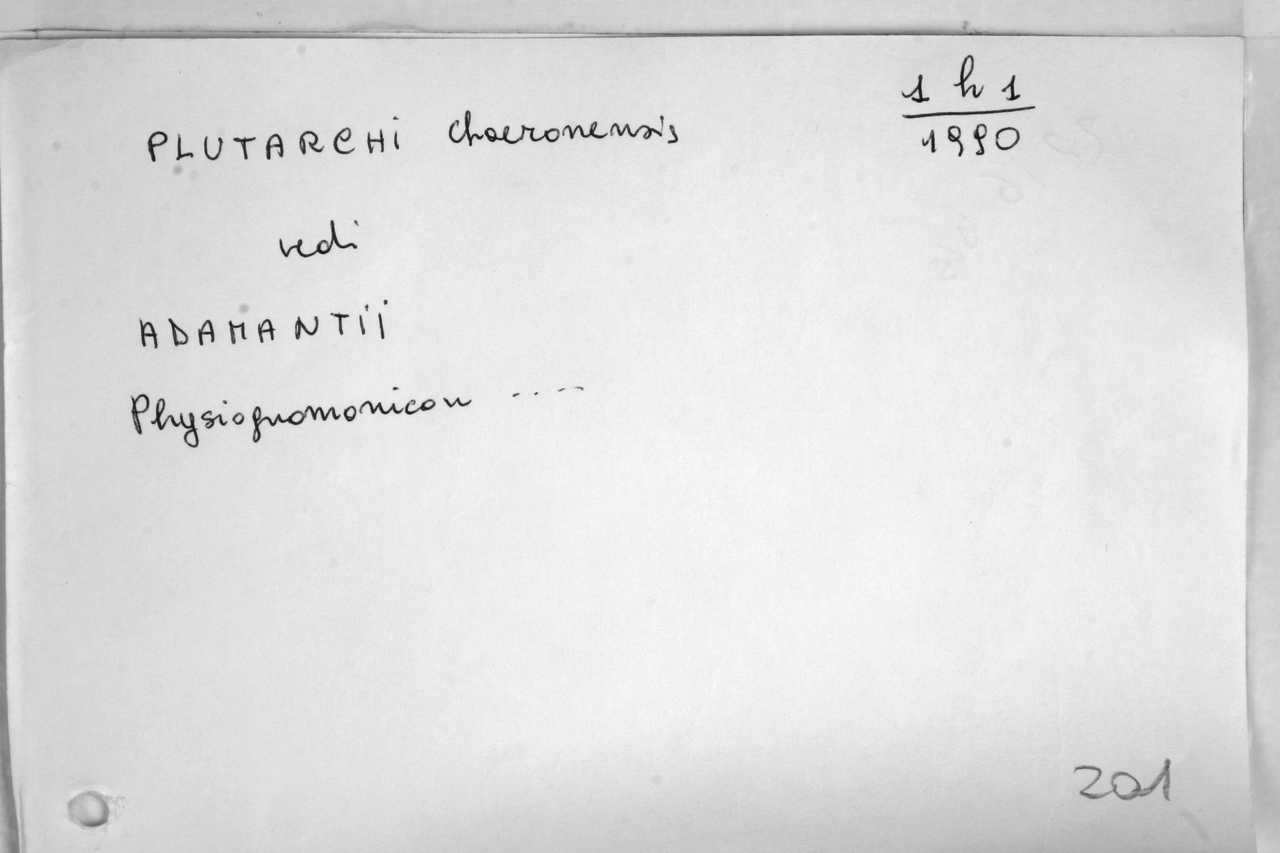 1 h 1
PLUTARCHi Chaeronensis
1990
vedi
ADAMANTii
Physiognomonicon ....
201